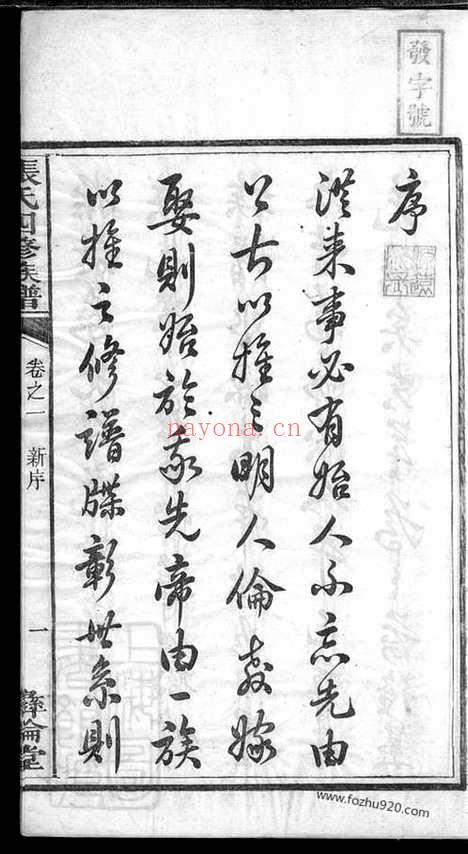 發字號
序
從来事必有始人不忘先由
上古以推之明人倫教嫁
娶則始於我先帝由一族
以推之修譜牒彰世系則
張氏四修族譜
卷之一 新序
一
彝倫堂
nayona.cn
www.fozhu920.com